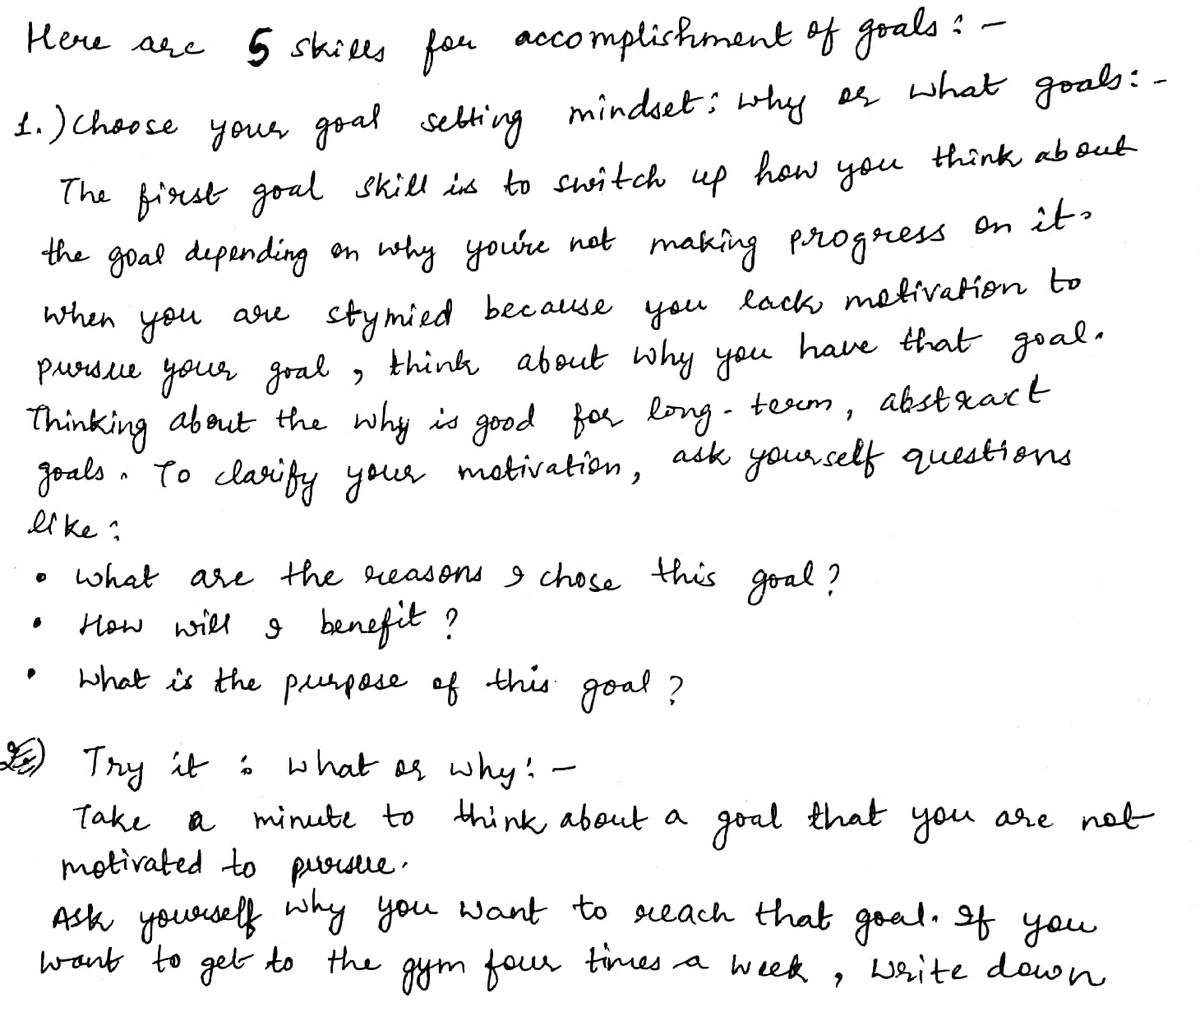 Here are 5 skills for accomplishment of goals : -
1.) Choose your goal setting mindset : why or what goals : -
The first goal skill is to switch up how you think about
the goal depending on why you're not making progress on it.
when you are stymied because you lack motivation to
pursue your goal , think about why you have that goal.
Thinking about the why is good for long-term, abstract
goals. To clarify your motivation, ask yourself questions
like :
• what are the reasons I chose this goal ?
• How will I benefit ?
• What is the purpose of this goal ?
Try it : what or why : -
Take a minute to think about a goal that you are not
motivated to pursue.
Ask yourself why you want to reach that goal. If you
want to get to the gym four times a week , write down